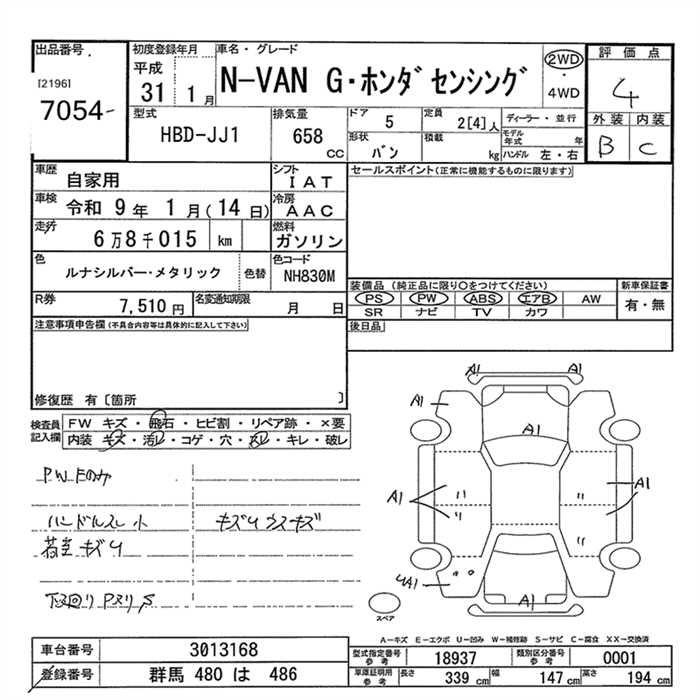 出品番号
[2196]
7054
初度登録年月
平成
31 1月
車名・グレード
N-VAN G・ホンダセンシング
2WD
・
4WD
評価点
4
外装 内装
B C
型式
HBD-JJ1
排気量
658 cc
ドア 5
定員 2[4]人
形状 バン
積載 kg
ディーラー・並行
モデル年式 年
ハンドル 左・右
車歴 自家用
シフト IAT
車検 令和 9年 1月(14日)
冷房 AAC
走行 6万8千015 km
燃料 ガソリン
色 ルナシルバー・メタリック 色替
色コード NH830M
R券 7,510円
名変通知期限 月 日
セールスポイント(正常に機能するものに限ります)
装備品 (純正品に限り○をつけてください)
PS PW ABS エアB AW
SR ナビ TV カワ
新車保証書
有・無
後日品
注意事項申告欄(不具合内容等は具体的に記入して下さい)
修復歴 有〔箇所 〕
検査員記入欄
FW キズ・飛石・ヒビ割・リペア跡・×要
内装 キズ・汚レ・コゲ・穴・欠レ・キレ・破レ
PWFのみ
ハンドルスレ 小 キズリウスキズ
下回り Pスリ,S
A1 A1
A1
A1
A1
A1
A1
4A1
A1
スペア
A-キズ E-エクボ U-凹み W-補修跡 S-サビ C-腐食 XX-交換済
車台番号 3013168
登録番号 群馬 480 は 486
型式指定番号 参考 18937
類別区分番号 参考 0001
車庫証明用 参考 長さ 339cm 幅 147cm 高さ 194cm